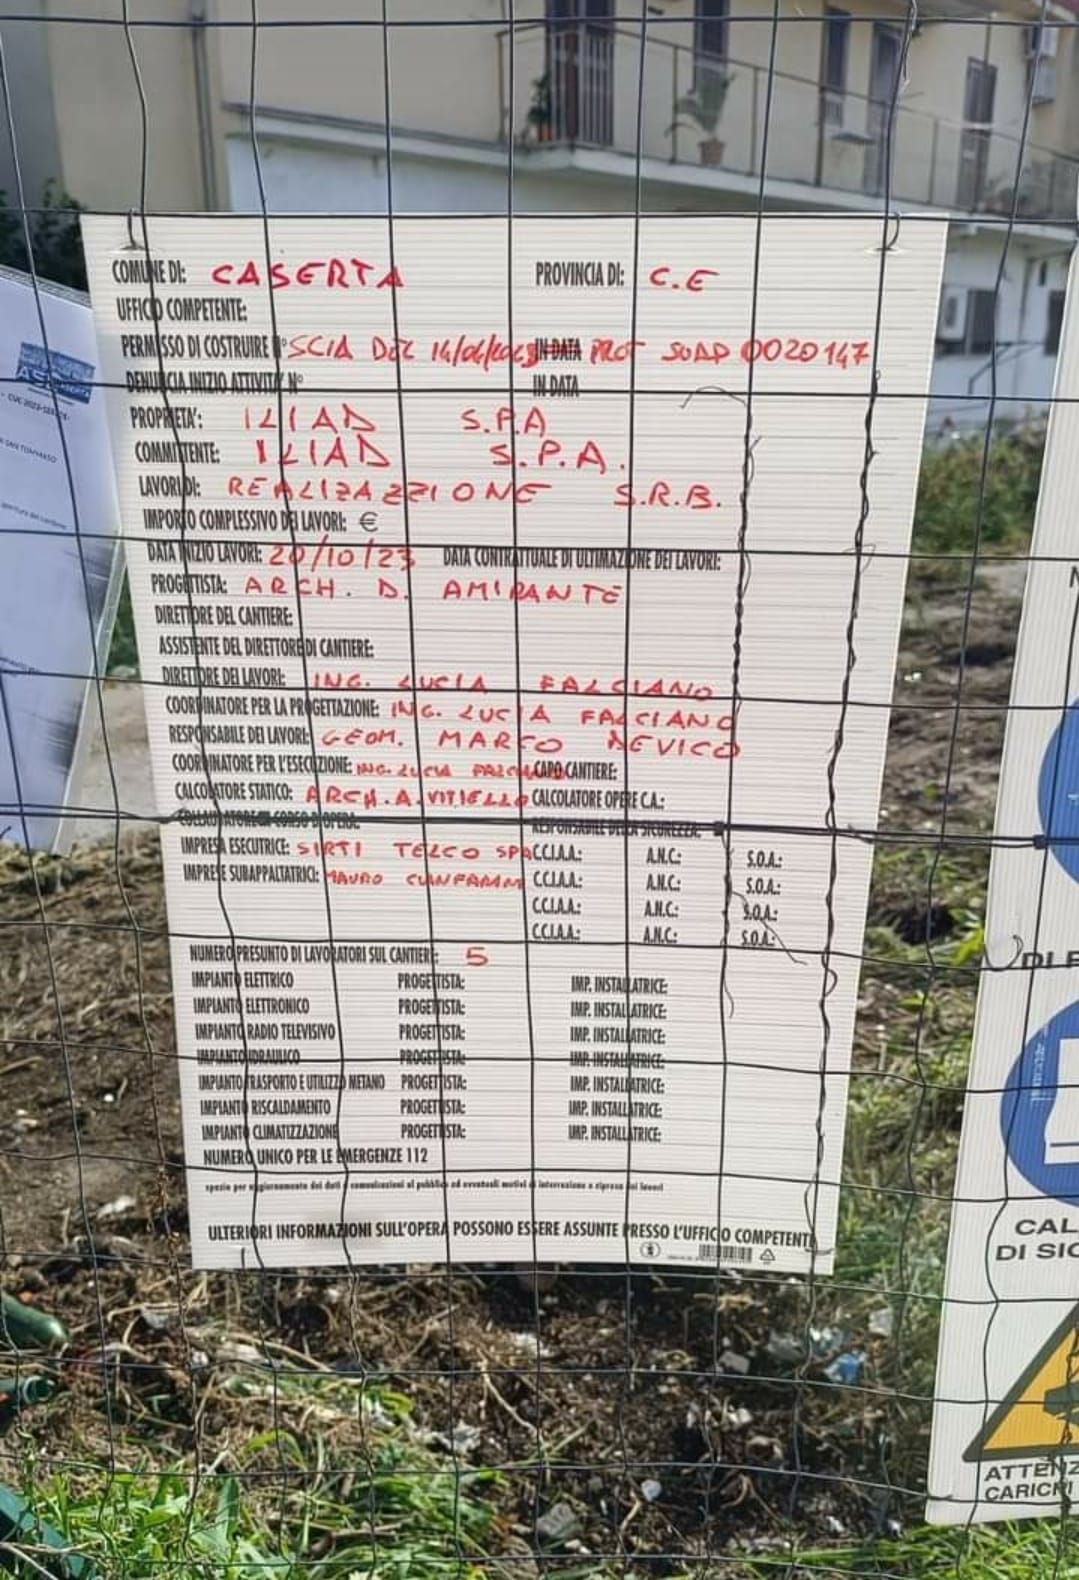 COMUNE DI: CASERTA PROVINCIA DI: C.E
UFFICIO COMPETENTE:
PERMESSO DI COSTRUIRE N° SCIA DEL IN DATA PROT SUAP 0020147
DENUNCIA INIZIO ATTIVITA' N° IN DATA
PROPRIETA': ILIAD S.P.A
COMMITTENTE: ILIAD S.P.A.
LAVORI DI: REALIZAZZIONE S.R.B.
IMPORTO COMPLESSIVO DEI LAVORI: €
DATA INIZIO LAVORI: 20/10/23 DATA CONTRATTUALE DI ULTIMAZIONE DEI LAVORI:
PROGETTISTA: ARCH. D. AMIRANTE
DIRETTORE DEL CANTIERE:
ASSISTENTE DEL DIRETTORE DI CANTIERE:
DIRETTORE DEI LAVORI: ING. LUCIA FALCIANO
COORDINATORE PER LA PROGETTAZIONE: ING. LUCIA FALCIANO
RESPONSABILE DEI LAVORI: GEOM. MARCO DEVICO
COORDINATORE PER L'ESECUZIONE: ING. LUCIA FALCIANO CAPO CANTIERE:
CALCOLATORE STATICO: ARCH. A. VITIELLO CALCOLATORE OPERE C.A.:
COLLAUDATORE IN CORSO D'OPERA: RESPONSABILE DELLA SICUREZZA:
IMPRESA ESECUTRICE: SIRTI TELCO SPA C.C.I.A.A.: A.N.C.: S.O.A.:
IMPRESE SUBAPPALTATRICI: MAURO C.C.I.A.A.: A.N.C.: S.O.A.:
C.C.I.A.A.: A.N.C.: S.O.A.:
C.C.I.A.A.: A.N.C.: S.O.A.:
NUMERO PRESUNTO DI LAVORATORI SUL CANTIERE: 5
IMPIANTO ELETTRICO PROGETTISTA: IMP. INSTALLATRICE:
IMPIANTO ELETTRONICO PROGETTISTA: IMP. INSTALLATRICE:
IMPIANTO RADIO TELEVISIVO PROGETTISTA: IMP. INSTALLATRICE:
IMPIANTO IDRAULICO PROGETTISTA: IMP. INSTALLATRICE:
IMPIANTO TRASPORTO E UTILIZZO METANO PROGETTISTA: IMP. INSTALLATRICE:
IMPIANTO RISCALDAMENTO PROGETTISTA: IMP. INSTALLATRICE:
IMPIANTO CLIMATIZZAZIONE PROGETTISTA: IMP. INSTALLATRICE:
NUMERO UNICO PER LE EMERGENZE 112
spazio per aggiornamento dei dati e comunicazioni al pubblico ed eventuali motivi di interruzione e ripresa dei lavori
ULTERIORI INFORMAZIONI SULL'OPERA POSSONO ESSERE ASSUNTE PRESSO L'UFFICIO COMPETENTE
CAL
DI SIC
ATTENZ
CARICHI